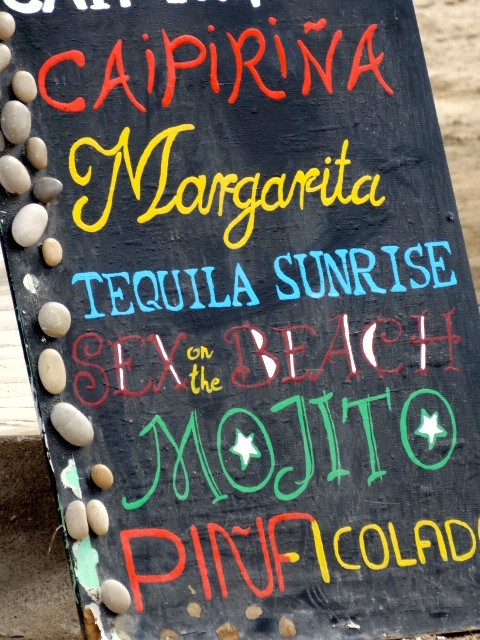 CAIPIRIÑA
Margarita
TEQUILA SUNRISE
SEX on the BEACH
MOJITO
PIÑA COLADA